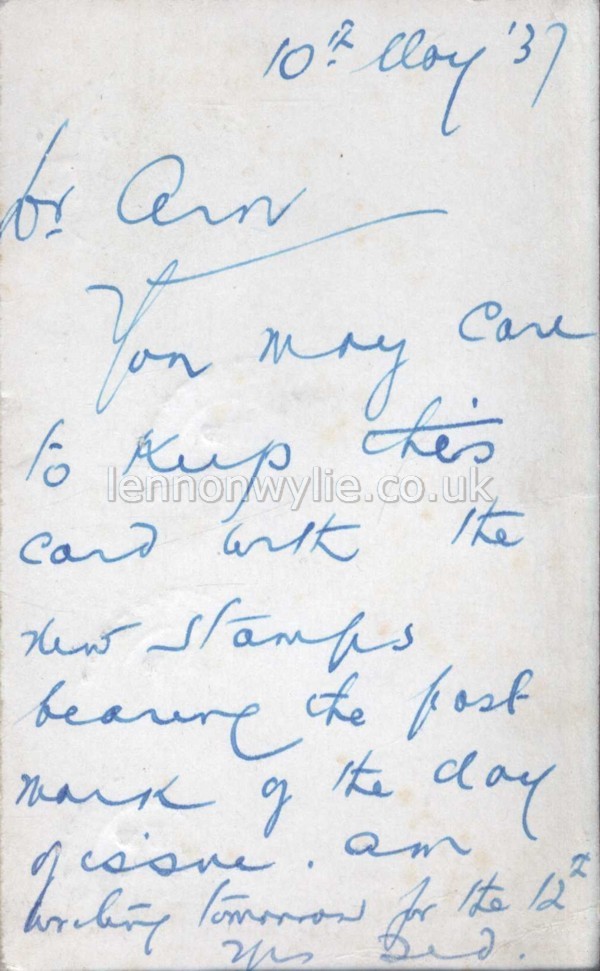 10th May '37
Dr. Ann
You may care
to keep this
lennonwylie.co.uk
card with the
new stamps
bearing the post
mark of the day
of issue. Am
writing tomorrow for the 12th
Yrs